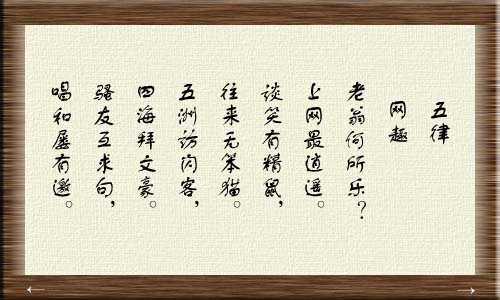 五律
网趣
老翁何所乐？
上网最逍遥。
谈笑有精鼠，
往来无笨猫。
五洲访闪客，
四海拜文豪。
骚友互求句，
唱和屡有邀。